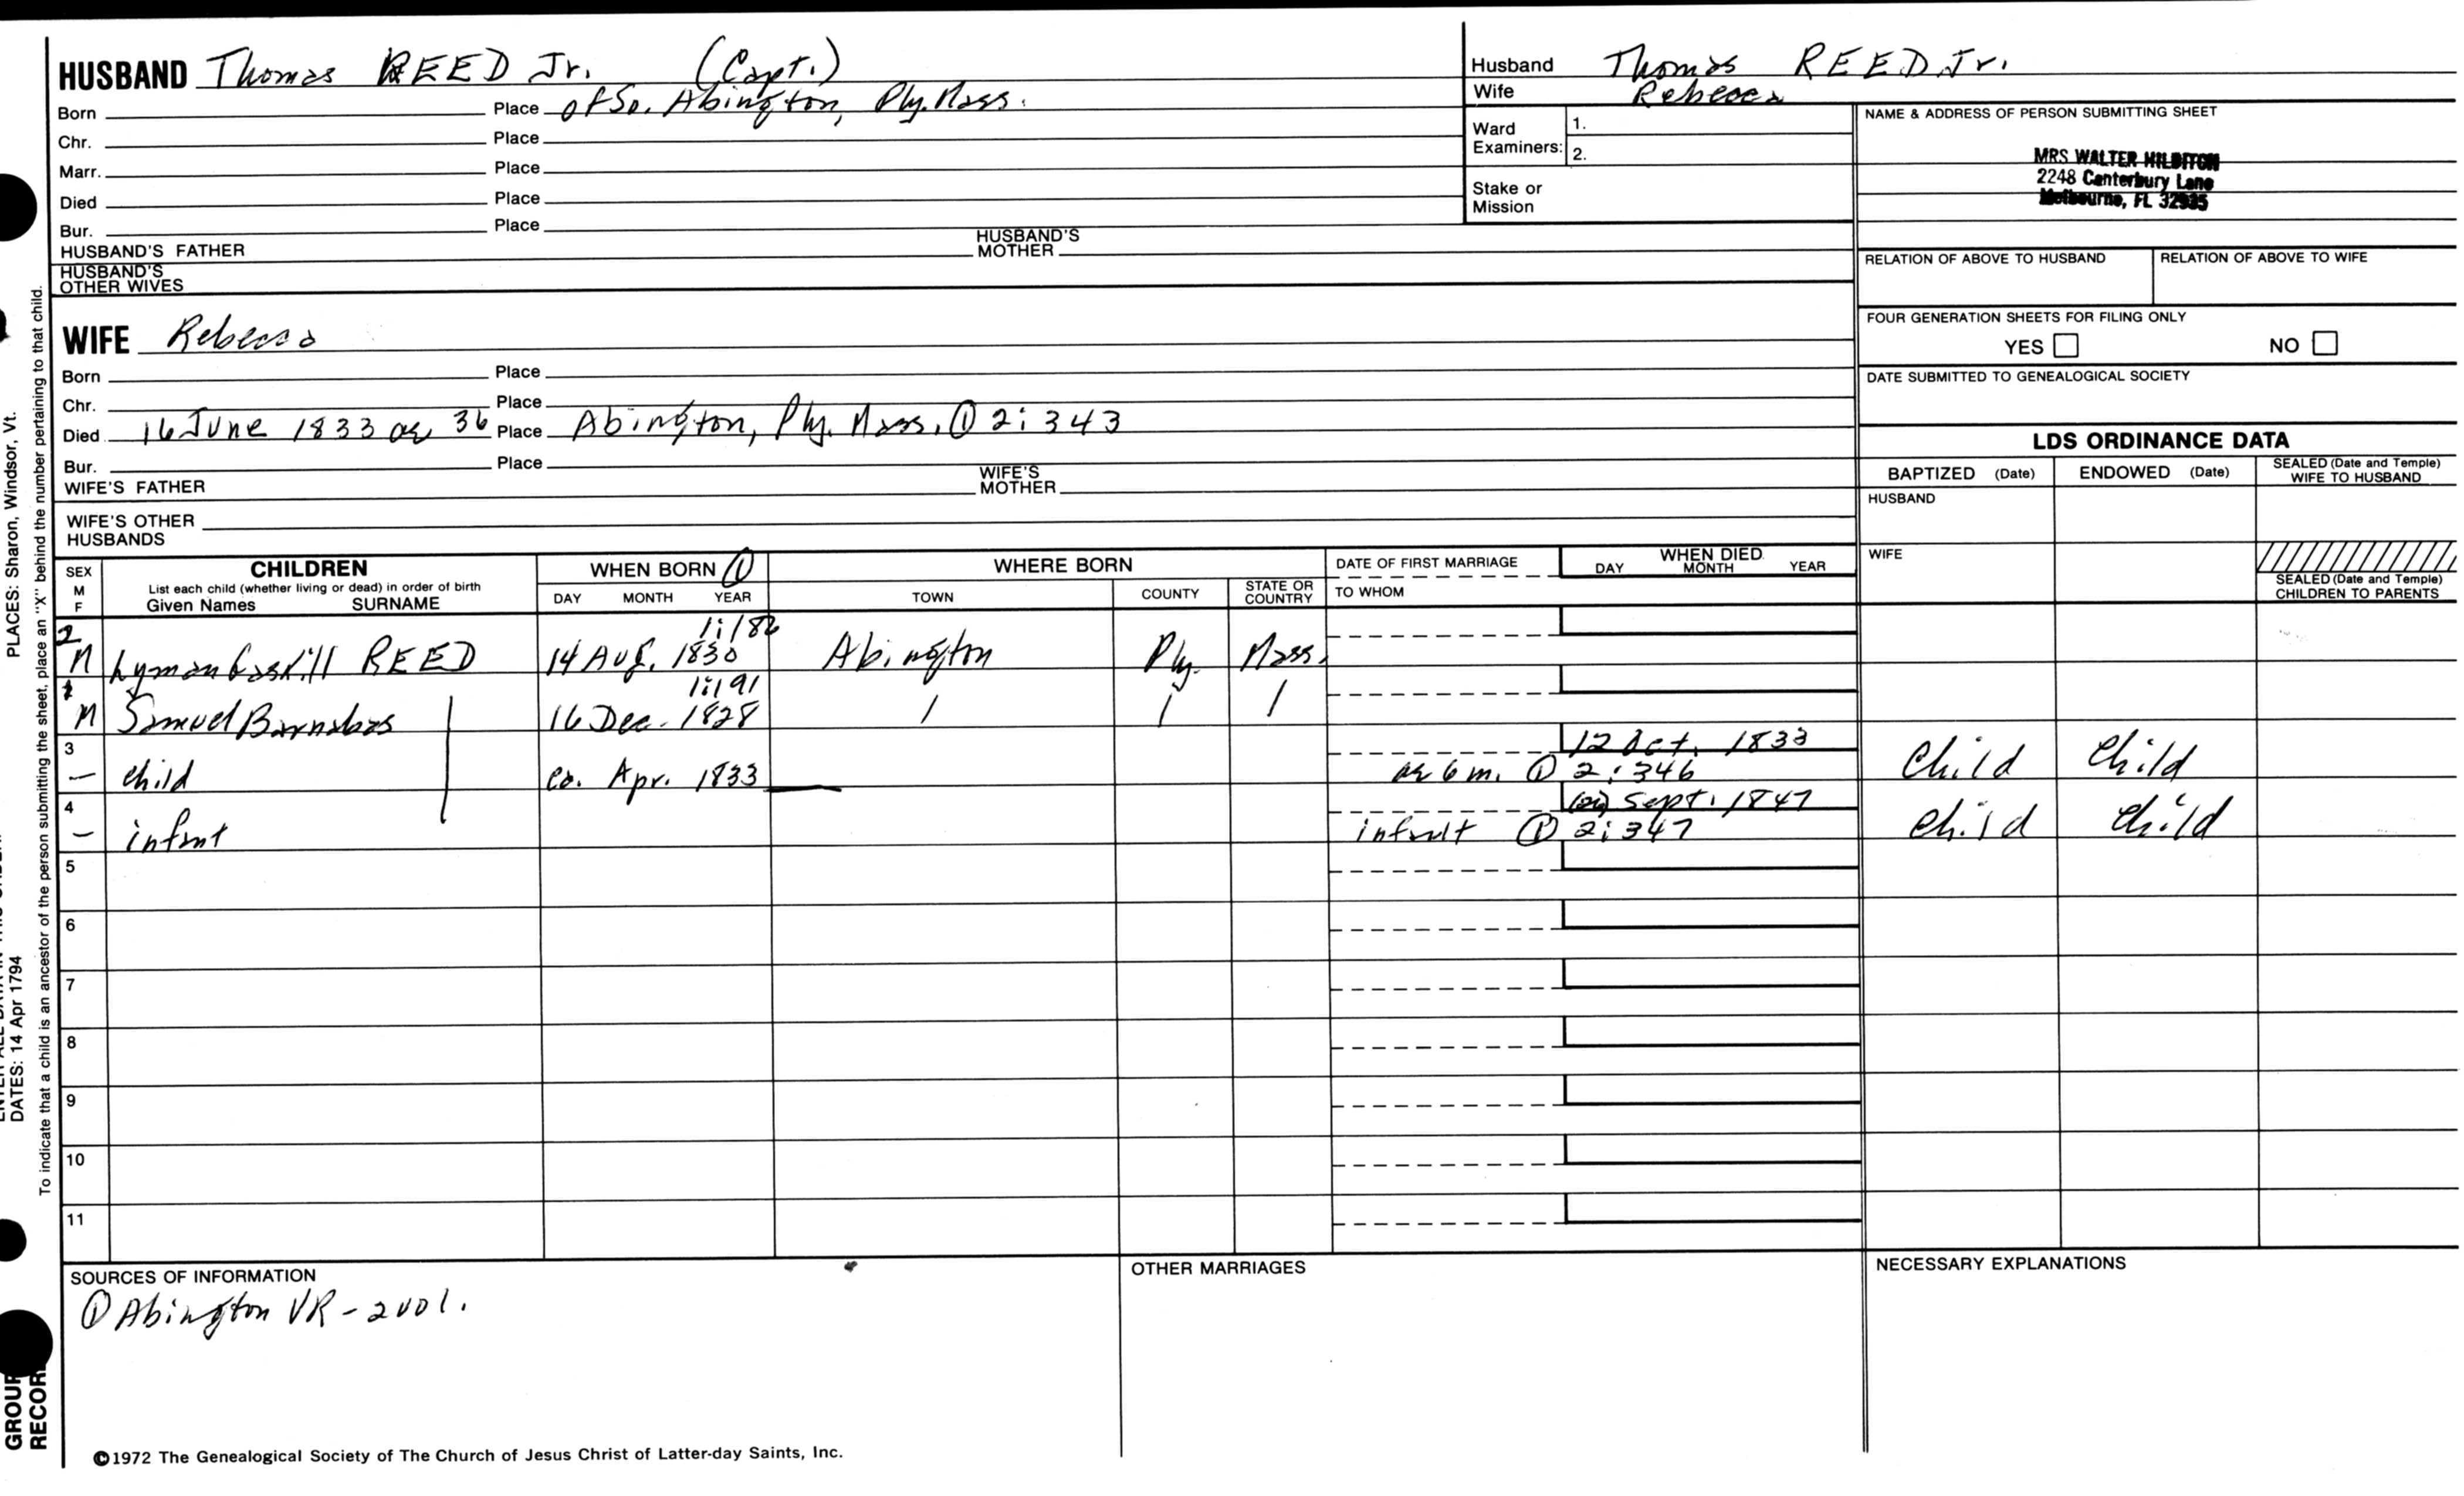 HUSBAND Thomas REED Jr. (Capt.)
Born Place of So. Abington, Ply. Mass.
Chr. Place
Marr. Place
Died Place
Bur. Place
HUSBAND'S FATHER HUSBAND'S MOTHER
HUSBAND'S OTHER WIVES
Husband Thomas REED Jr.
Wife Rebecca
Ward Examiners: 1.
2.
Stake or Mission
NAME & ADDRESS OF PERSON SUBMITTING SHEET
MRS WALTER HILDITCH
2248 Canterbury Lane
Melbourne, FL 32935
RELATION OF ABOVE TO HUSBAND RELATION OF ABOVE TO WIFE
FOUR GENERATION SHEETS FOR FILING ONLY
YES NO
DATE SUBMITTED TO GENEALOGICAL SOCIETY
WIFE Rebecca
Born Place
Chr. Place
Died 16 June 1833 ae 36 Place Abington, Ply. Mass. ① 2:343
Bur. Place
WIFE'S FATHER WIFE'S MOTHER
WIFE'S OTHER HUSBANDS
LDS ORDINANCE DATA
BAPTIZED (Date) ENDOWED (Date) SEALED (Date and Temple) WIFE TO HUSBAND
HUSBAND
WIFE
SEALED (Date and Temple) CHILDREN TO PARENTS
SEX M F
CHILDREN
List each child (whether living or dead) in order of birth
Given Names SURNAME
WHEN BORN ①
DAY MONTH YEAR
WHERE BORN
TOWN COUNTY STATE OR COUNTRY
DATE OF FIRST MARRIAGE
TO WHOM
WHEN DIED
DAY MONTH YEAR
2 1:182
M Lyman Gaskill REED 14 Aug. 1830 Abington Ply. Mass.
1 1:191
M Samuel Barnabas 16 Dec. 1828 / / /
3 12 Oct. 1833
— child ca. Apr. 1833 — ae 6 m. ① 2:346 Child Child
4 Sept. 1847
— infant infant ① 2:347 Child Child
5
6
7
8
9
10
11
SOURCES OF INFORMATION
① Abington VR - 2 vol.
OTHER MARRIAGES
NECESSARY EXPLANATIONS
©1972 The Genealogical Society of The Church of Jesus Christ of Latter-day Saints, Inc.
PLACES: Sharon, Windsor, Vt.
DATES: 14 Apr 1794
To indicate that a child is an ancestor of the person submitting the sheet, place an "X" behind the number pertaining to that child.
GROUP
RECOR